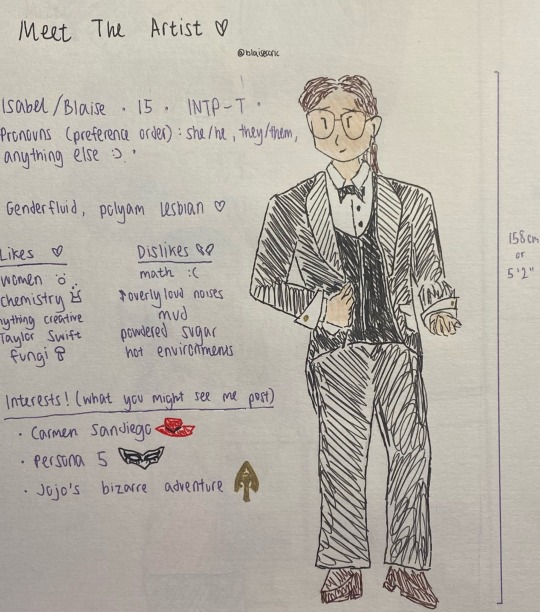 Meet The Artist ♡
@blaisesaric
Isabel/Blaise · 15 · INTP-T ·
Pronouns (preference order): she/he, they/them,
anything else :) ·
Genderfluid, polyam lesbian ♡
Likes ♡
women
chemistry
ything creative
Taylor Swift
fungi
Dislikes
math :(
overly loud noises
mud
powdered sugar
hot environments
Interests! (what you might see me post)
· Carmen Sandiego
· Persona 5
· Jojo's bizarre adventure
158cm
or
5'2"